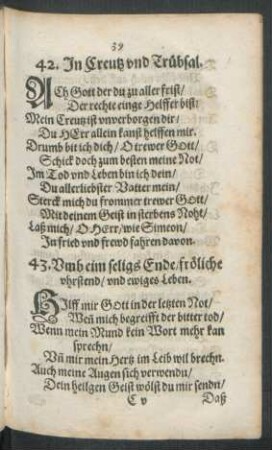 39
42. In Creutz vnd Trübsal.
ACh Gott der du zu aller frist/
Der rechte einge Helffer bist/
Mein Creutz ist vnverborgen dir/
Du HErr allein kanst helffen mir.
Drumb bit ich dich/ O trewer GOtt/
Schick doch zum besten meine Not/
Im Tod vnd Leben bin ich dein/
Du allerliebster Vatter mein/
Sterck mich du frommer trewer GOtt/
Mit deinem Geist in sterbens Noht/
Laß mich/ O HErr/ wie Simeon/
In fried vnd frewd fahren davon.
43. Vmb eim seligs Ende/ fröliche
vhrstend/ vnd ewiges Leben.
HIlff mir GOtt in der letzten Not/
Weñ mich begreifft der bitter tod/
Wenn mein Mund kein Wort mehr kan
sprechn/
Vñ mir mein Hertz im Leib wil brechn.
Auch meine Augen sich verwendn/
Dein heilgen Geist wölst du mir sendn/
C v Daß